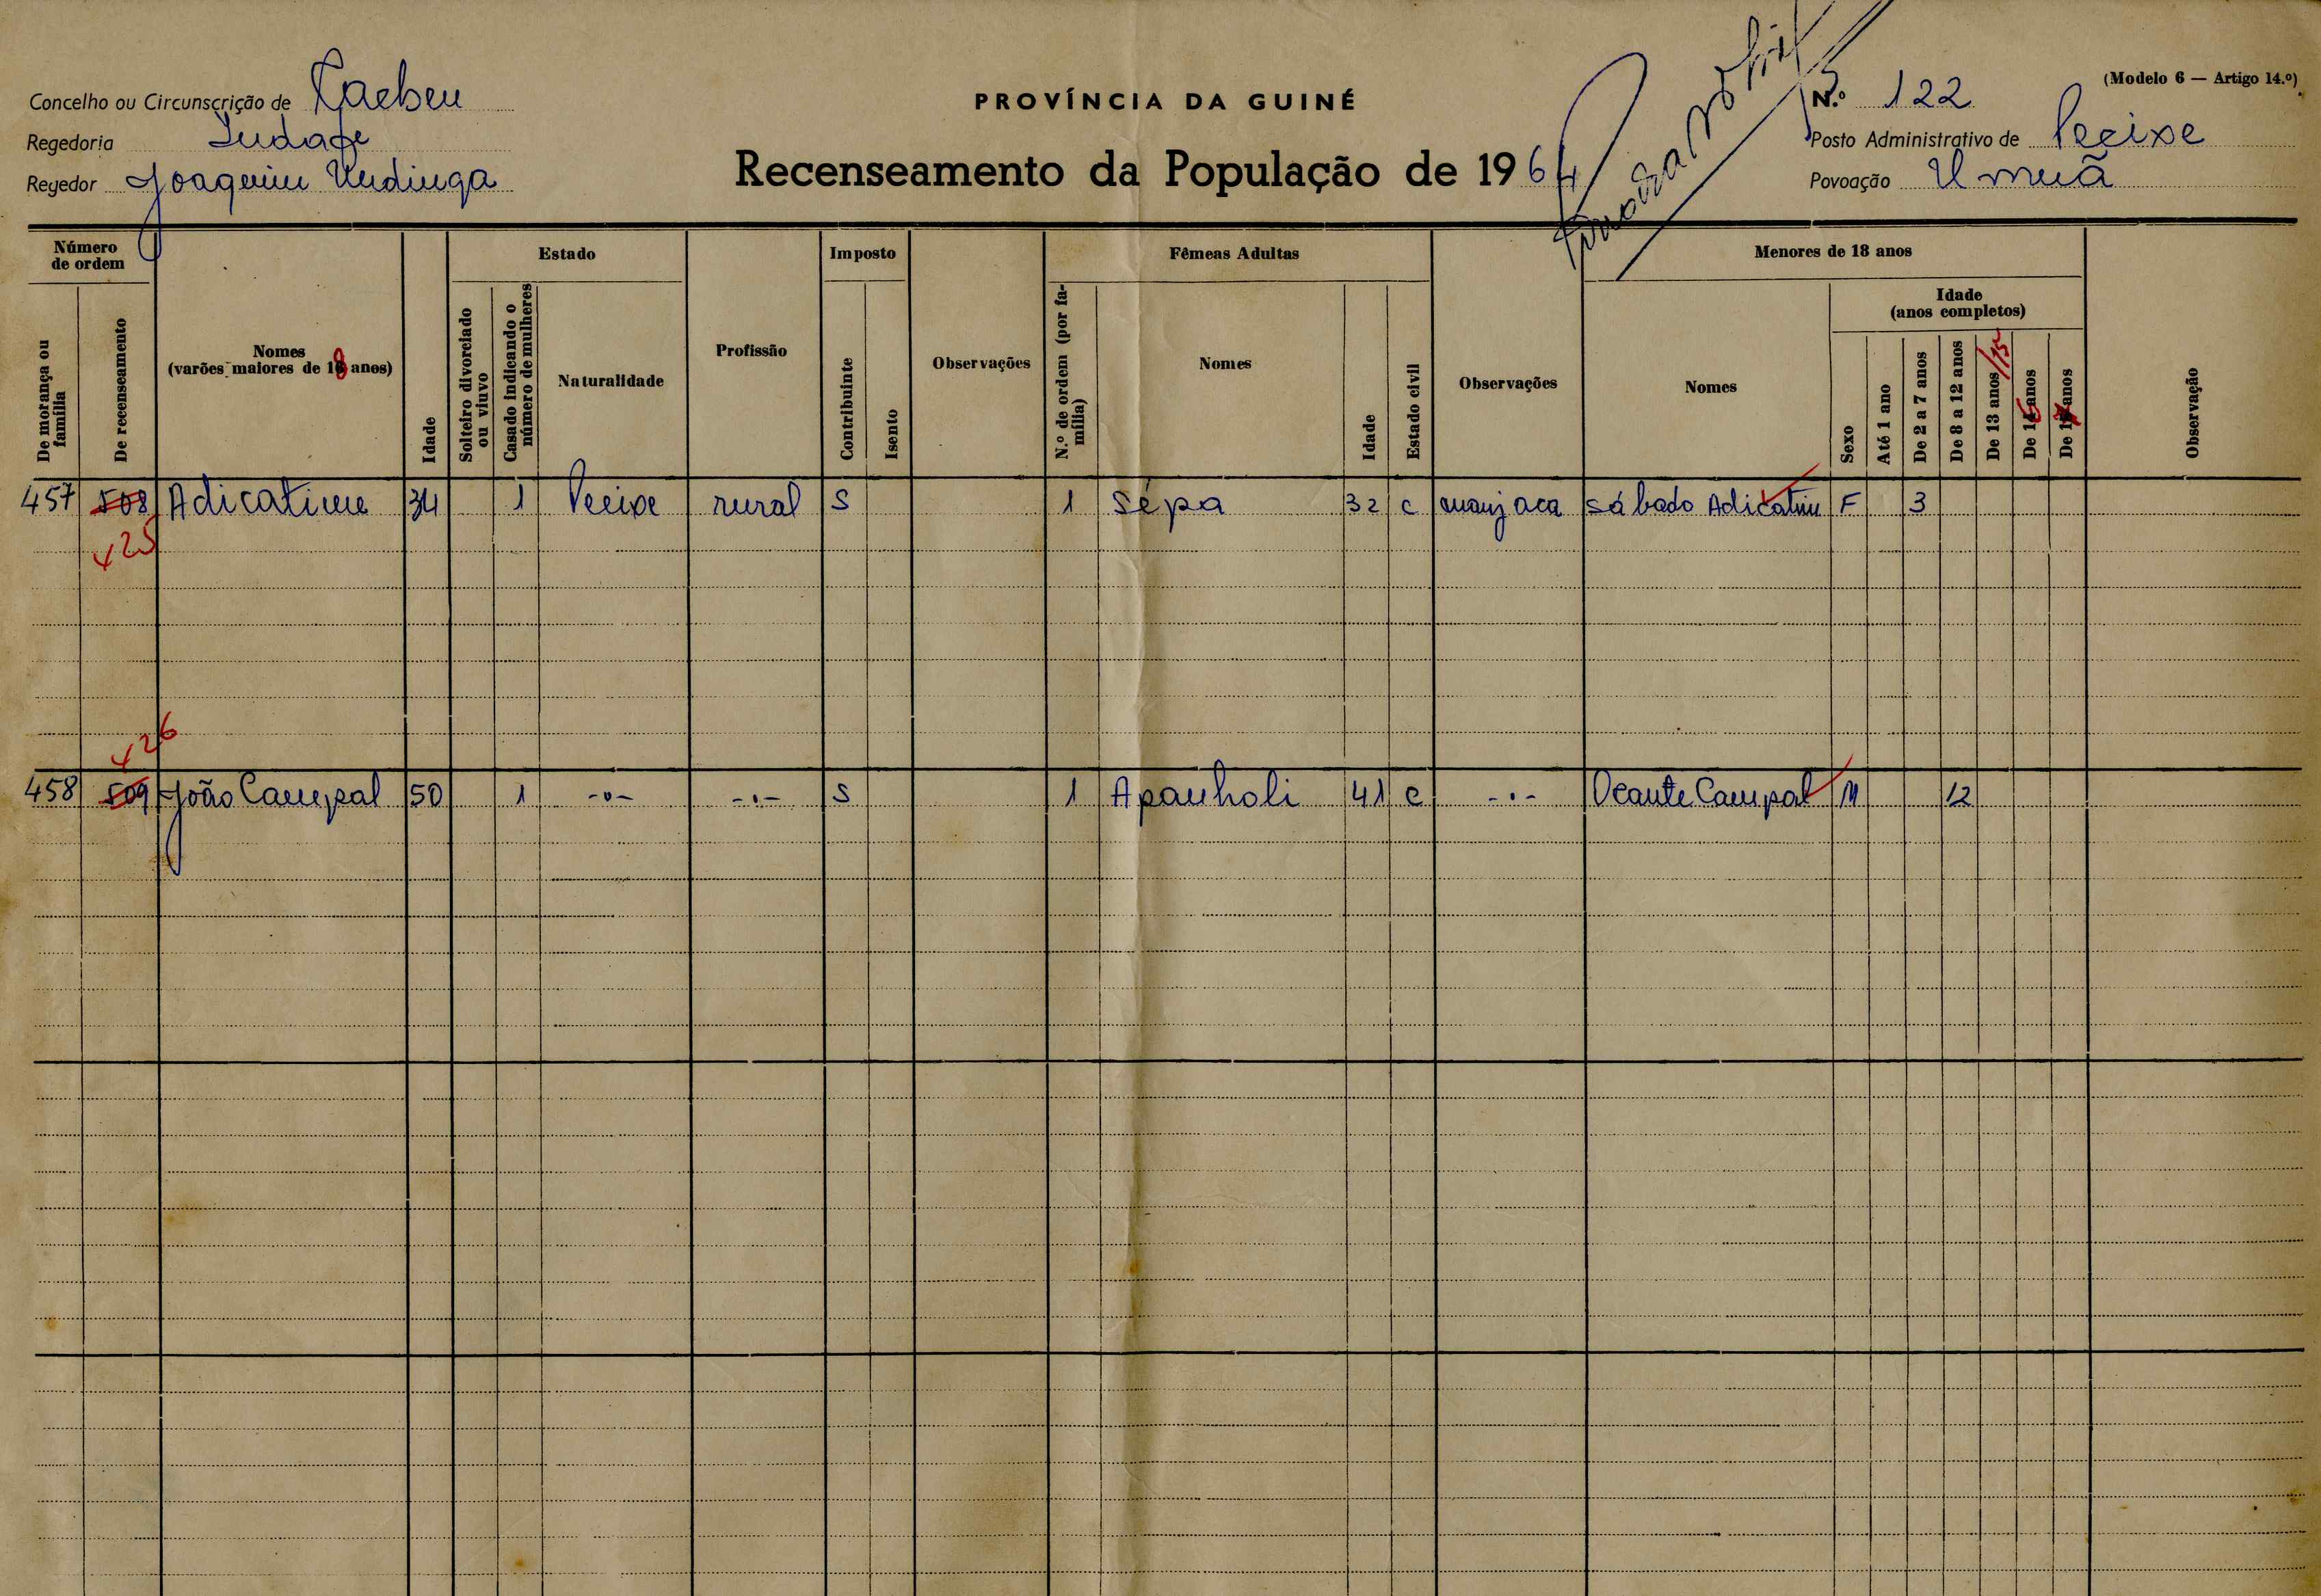 Concelho ou Circunscrição de Caebeu
Regedoria Indafe
Regedor Joaquim Undinga
PROVÍNCIA DA GUINÉ
Recenseamento da População de 1964
(Modelo 6 — Artigo 14.º)
N.º 122
Posto Administrativo de Pecixe
Povoação Umuã
Número de ordem
De morança ou família
De recenseamento
Nomes
(varões maiores de 18 anos)
Idade
Estado
Solteiro divorciado ou viuvo
Casado indicando o número de mulheres
Naturalidade
Profissão
Imposto
Contribuinte
Isento
Observações
Fêmeas Adultas
N.º de ordem (por família)
Nomes
Idade
Estado civil
Observações
Menores de 18 anos
Nomes
Idade
(anos completos)
Sexo
Até 1 ano
De 2 a 7 anos
De 8 a 12 anos
De 13 anos /15
De 16 anos
De 17 anos
Observação
457 508 Adicatime 34 1 Pecixe rural S 1 Sépa 32 c manjaca Sábado Adicatim F 3
425
426
458 509 João Campal 50 1 -o- -.- S 1 Apanholi 41 c -.- Ocante Campal M 12